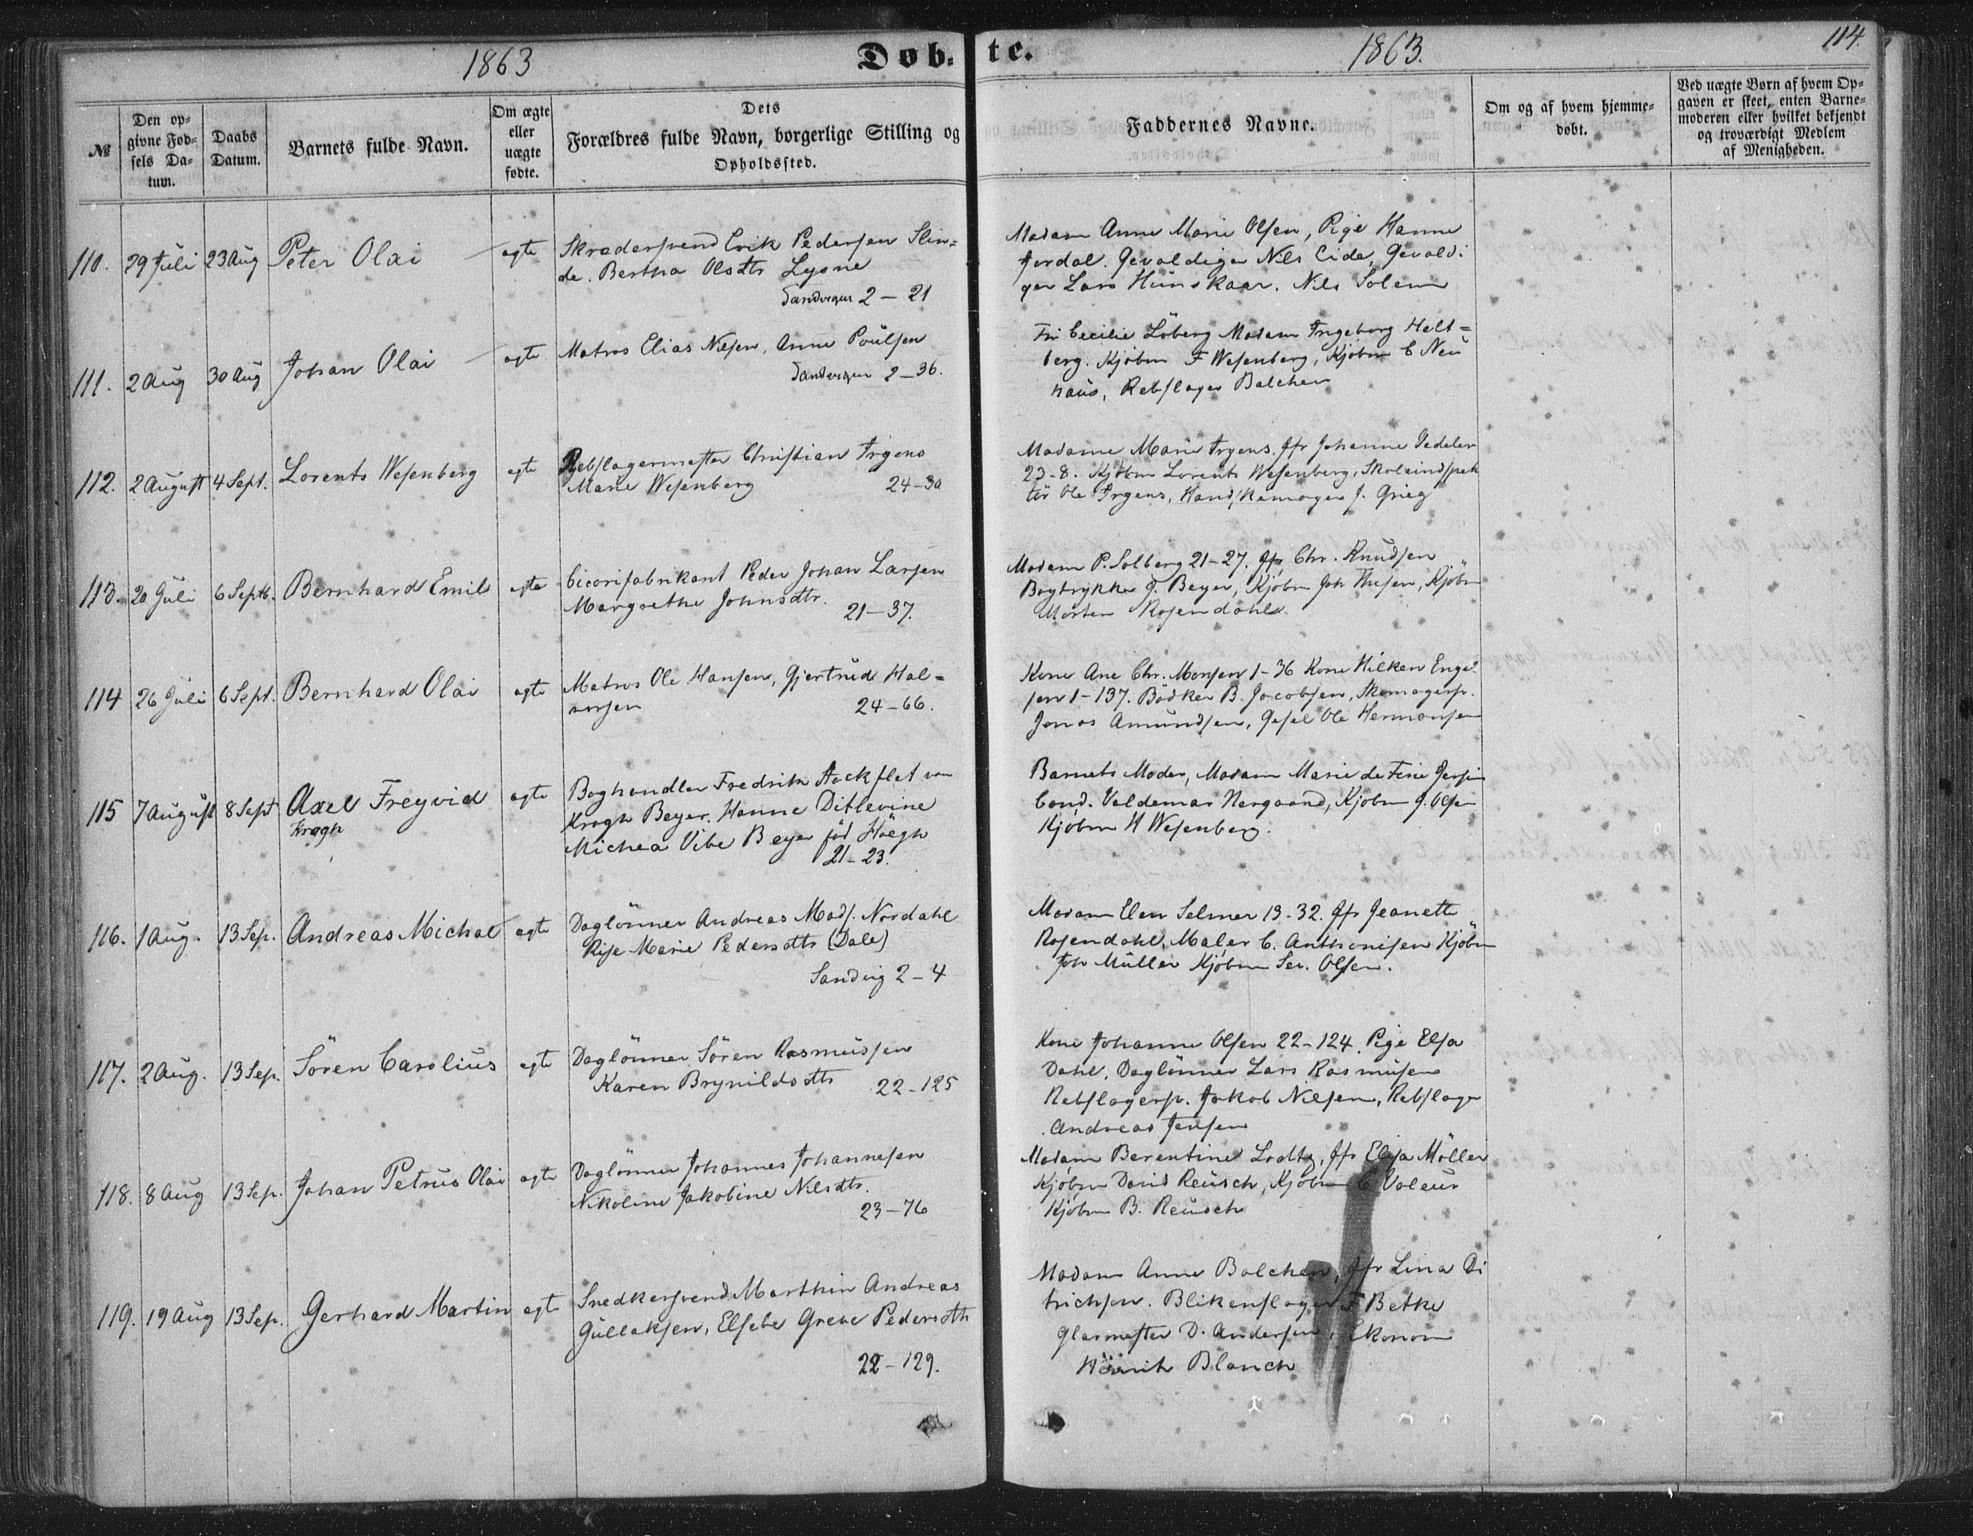 1863
Døb-
te.
1863.
114.
№
Den op-
givne Fød-
sels Da-
tum.
Daabs
Datum.
Barnets fulde Navn.
Om ægte
eller
uægte
fødte.
Dets
Forældres fulde Navn, borgerlige Stilling og
Opholdssted.
Faddernes Navne.
Om og af hvem hjemme-
døbt.
Ved uægte Børn af hvem Op-
gaven er skeet, enten Barne-
moderen eller hvilket bekjendt
og troværdigt Medlem
af Menigheden.
110. 29 Juli 23 Aug Peter Olai ægte Skrædersvend Erik Pedersen Slin-
de. Bertha Olsdtr Lysne
Sandvigen 2-21
Madam Anne Marie Olsen, Pige Hanne
Jordal. Gevaldiger Nils Eide, Gevaldi
ger Lars Hunskaar. Nils Solem
111. 2 Aug 30 Aug Johan Olai ægte Matros Elias Nilsen, Anne Poülsen
Sandvigen 2-36.
Fru Cecilie Löberg Madam Ingeborg Helt-
berg. Kjøbm F Wesenberg, Kjøbm C Neu
haus, Rebslager Balchen
112. 2 August 4 Sept. Lorents Wesenberg ægte Rebslagermester Christian Irgens
Marie Wesenberg 24-30
Madame Marie Irgens. Jfr Johanne Dedeler
23-8. Kjøbm Lorents Wesenberg, Skoleinspek
tör Ole Irgens, Handskemager J. Grieg
113. 20 Juli 6 Septb. Bernhard Emil ægte Cicorifabrikant Peder Johan Larsen
Margrethe Johnsdtr. 21-37.
Madam P. Solberg 21-27. Jfr Chr. Knudsen
Bogtrykker F. Beyer, Kjøbm Joh Thesen, Kjøbm
Morten Rosendahl
114 26 Juli 6 Sept. Bernhard Olai ægte Matros Ole Hansen, Gjertrud Hal-
vorsen 24-66.
Kone Ane Chr. Monsen 1-36 Kone Hilken Engel
sen 1-137. Bödker B. Jacobsen, Skomagersv.
Jonas Amundsen, Gesel Ole Hermansen
115 7 August 8 Sept Axel Freyvid
Krogh
ægte Boghandler Fredrik von
Krogh Beyer. Hanne Ditlevine
Michea Vibe Beyer föd Höegh
21-23.
Barnets Moder, Madam Marie de Fine
Cand. Valdemar Nergaard, Kjøbm J. Olsen
Kjøbm H Wesenberg.
116. 1 Aug. 13 Sep. Andreas Michal ægte Daglönner Andreas Mads. Nordahl
Rise Marie Pedersdtr (Dale)
Sandvig 2-4
Madam Elen Selmer 13-32. Jfr Jeanette
Rosendahl, Maler C. Anthonisen Kjöbm
Joh Müller Kjøbm Sev. Olsen.
117. 2 Aug. 13 Sep. Sören Carolius ægte Daglönner Sören Rasmussen
Karen Brynildsdtr 22-125
Kone Johanne Olsen 22-124. Pige Elsa
Dahl, Daglönner Lars Rasmusen
Rebslagersv. Jakob Nilsen, Rebslager
Andreas Jensen
118. 8 Aug 13 Sep. Johan Petrus Olai ægte Daglönner Johannes Johannesen
Nikoline Jakobine Nilsdtr.
23-76
Madam Berentine, Jfr Elisa Möller
Kjøbm David Reusch, Kjøbm C Voleur
Kjøbm B. Reusch
119. 19 Aug 13 Sep. Gerhard Martin ægte Snedkersvend Marthin Andreas
Gullaksen, Elsebe Greve Pedersdtr
22-129.
Madam Anne Balchen, Jfr Lina Di
trichsen. Blikenslager F Betke
Glasmester D. Andersen, Ekonom
Henrik Blanch